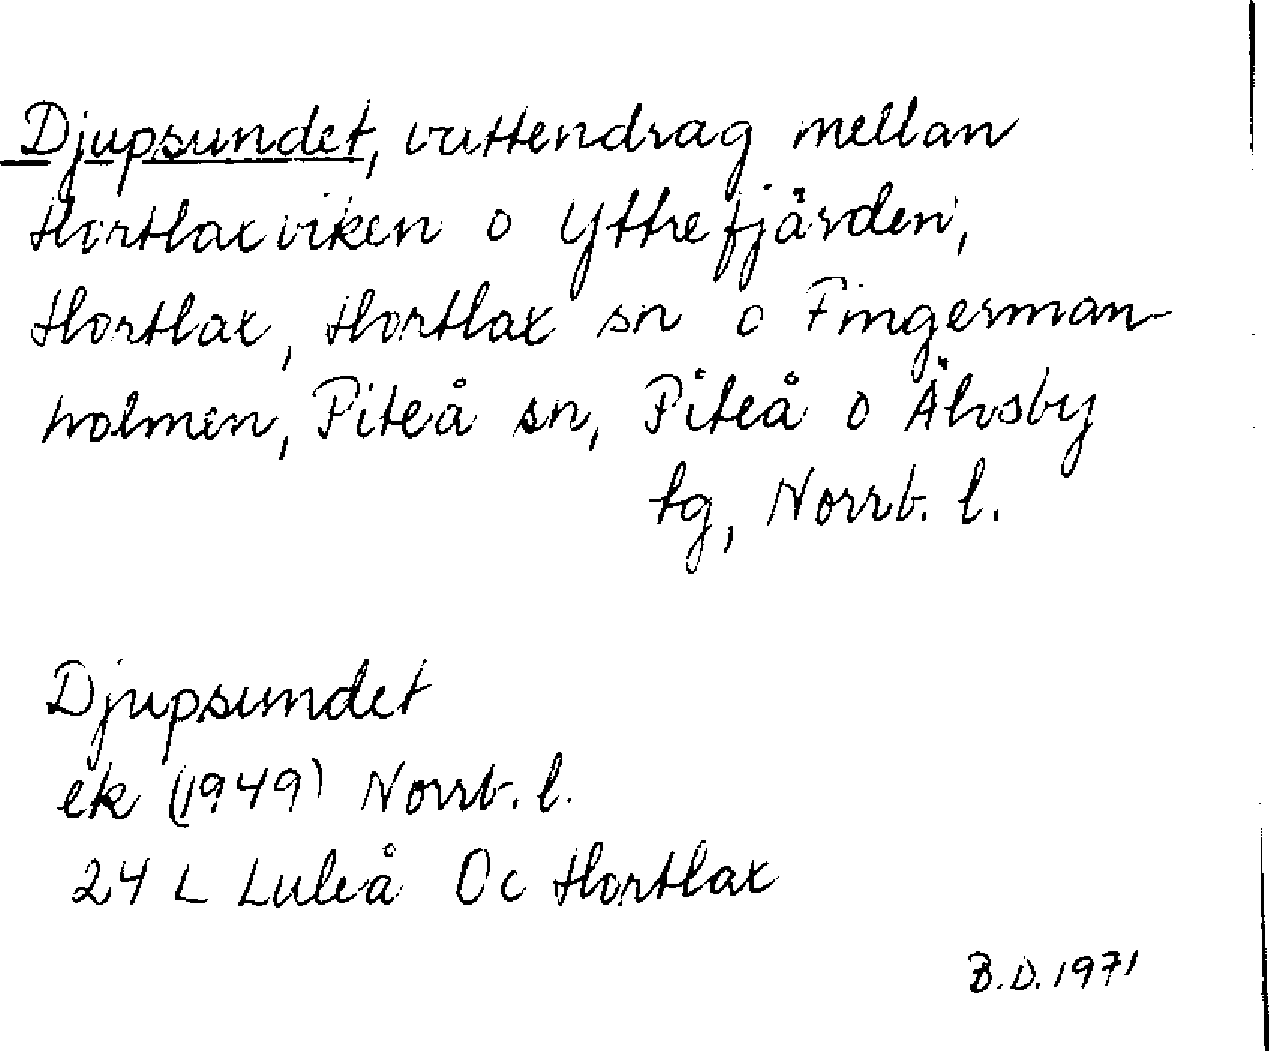 Djupsundet, vattendrag mellan
Hortlaxviken o Yttrefjärden,
Hortlax, Hortlax sn o Fingerman-
holmen, Piteå sn, Piteå o Älvsby
tg, Norrb. l.
Djupsundet
ek (1949) Norrb. l.
24 L Luleå 0c Hortlax
B.D. 1971